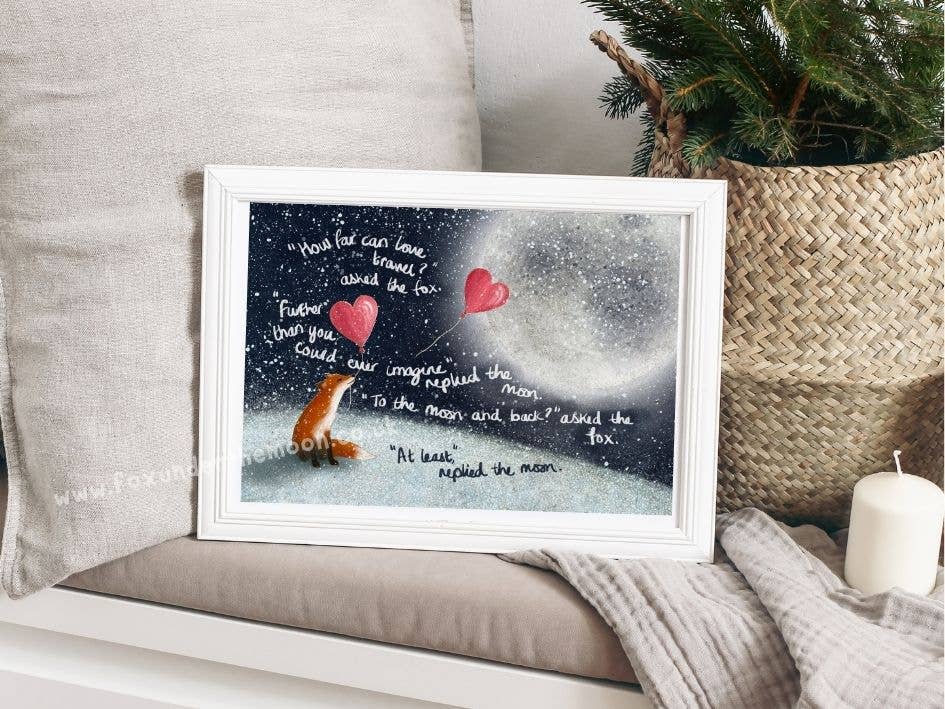 "How far can love
travel?"
asked the fox.
"Further
than you
could ever imagine"
replied the
moon.
"To the moon and back?" asked the
fox.
"At least,"
replied the moon.